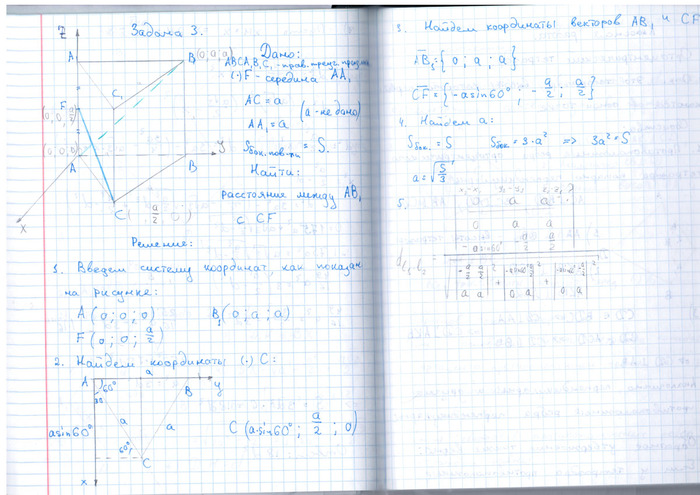 Задача 3.
Z
A
B(0;a;a)
C₁
F
(0;0;a/2)
(0;0;0)
A
B
y
C
x
Дано:
ABCA₁B₁C₁ - прав. треуг. призма
(·) F - середина AA₁
AC = a
(a - не дано)
AA₁ = a
Sбок. пов-ти = S.
Найти:
расстояние между AB₁
с CF
Решение:
1. Введем систему координат, как показан
на рисунке:
A (0; 0; 0) B₁(0; a; a)
F(0; 0; a/2)
2. Найдем координаты (·) C:
A a y
60°
B
a sin60° a a
60°
C
x
C (a·sin60°; a/2; 0)
3. Найдем координаты векторов AB₁ и CF
AB₁{0; a; a}
CF = {-a sin60°; -a/2; a/2}
4. Найдем a:
Sбок. = S Sбок = 3·a² => 3a² = S
a = √(S/3)
5.
0 a a
-a sin60° -a/2 a/2
d l₁ l₂ =